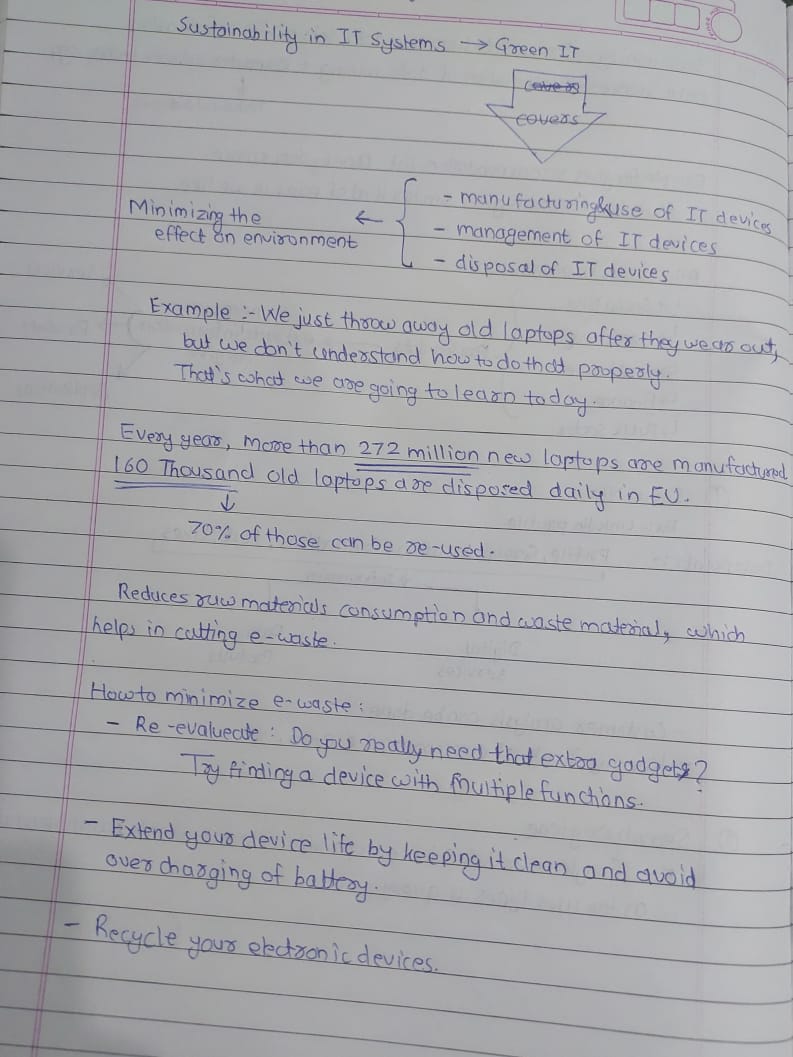 Sustainability in IT Systems → Green IT
covers
Minimizing the
effect on environment
←
- manufacturing & use of IT devices
- management of IT devices
- disposal of IT devices
Example :- We just throw away old laptops after they wear out,
but we don't understand how to do that properly.
That's what we are going to learn today.
Every year, more than 272 million new laptops are manufactured
160 Thousand old laptops are disposed daily in EU.
↓
70% of those can be re-used.
Reduces raw materials consumption and waste material, which
helps in cutting e-waste.
How to minimize e-waste :
- Re-evalueate : Do you really need that extra gadgets?
Try finding a device with multiple functions.
- Extend your device life by keeping it clean and avoid
over charging of battery.
- Recycle your electronic devices.